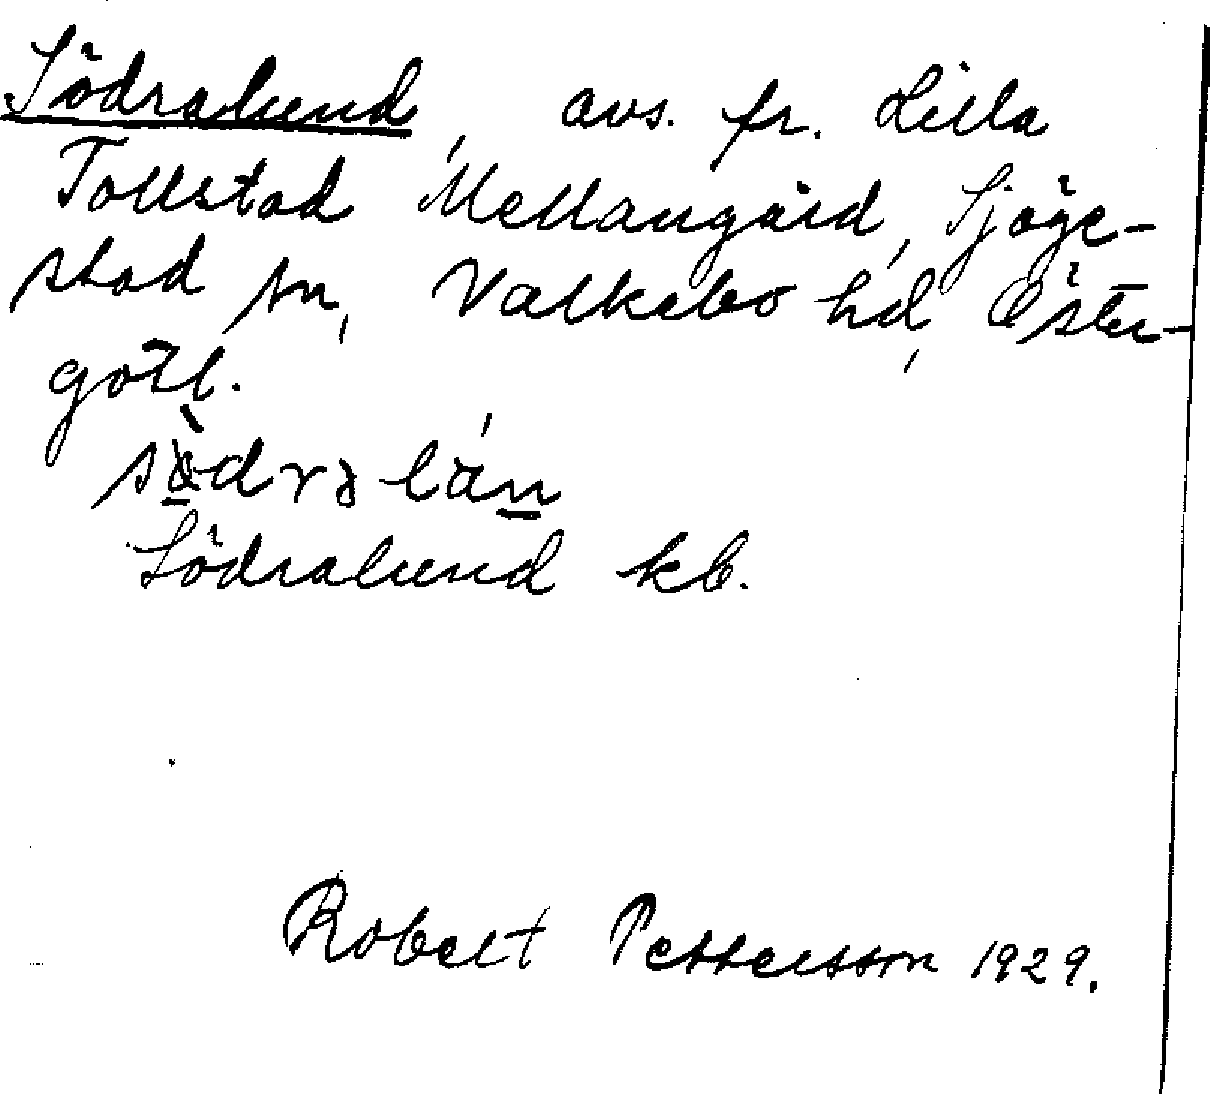 Södralund, avs. fr. Lilla
Tollstad Mellangård, Sjöge-
stad sn, Valkebo hd, Öster-
götl.
sö̀drə lán
Södralund kb.
Robert Pettersson 1929.